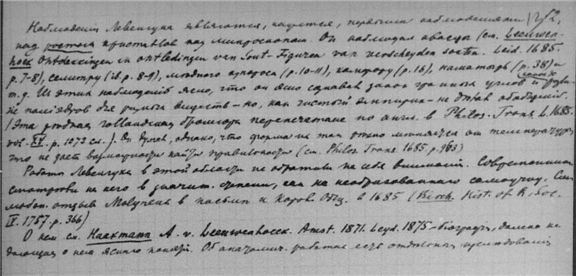 Наблюдения Левенгука являются, кажется, первыми наблюдениями
над ростом кристаллов под микроскопом. Он наблюдал квасцы (см. Leeuwen-
hoek Ontdeckingen en ontledingen van Sout-Figuren van verscheyden souten. Leid. 1685
p. 7-8), селитру (ib. p. 8-9), медного купороса (p. 10-11), камфору (p. 16), нашатырь (p. 38) и
т. д. Из этих наблюдений ясно, что он ясно сознавал закон гранных углов и
не пользовался для разных веществ – но, как чистый эмпирик – не делал обобщений.
(Эта редкая голландская брошюра перепечатана по англ. в Philos. Trans. L. 1685.
vol. XV. p. 1073 сл.). Он думал, однако, что форма их так резко меняется от температуры,
что не дает возможности найти правильности (см. Philos. Trans. 1685. p. 963)
Работы Левенгука в этой области не обратили на себя внимания. Современники
смотрели на него в значит. степени, как на необразованного самоучку. См.
любоп. отзыв Молинё в письме к Корол. Общ. в 1685 (Birch. Hist. of R. Soc.
IV. 1757. p. 366)
О нем см. Haaxmann A. v. Leeuwenhoeck. Amst. 1871. Leyd. 1875 – биограф., далеко не
дающая о нем ясного понятия. Об анатомич. работах есть отдельных исследований